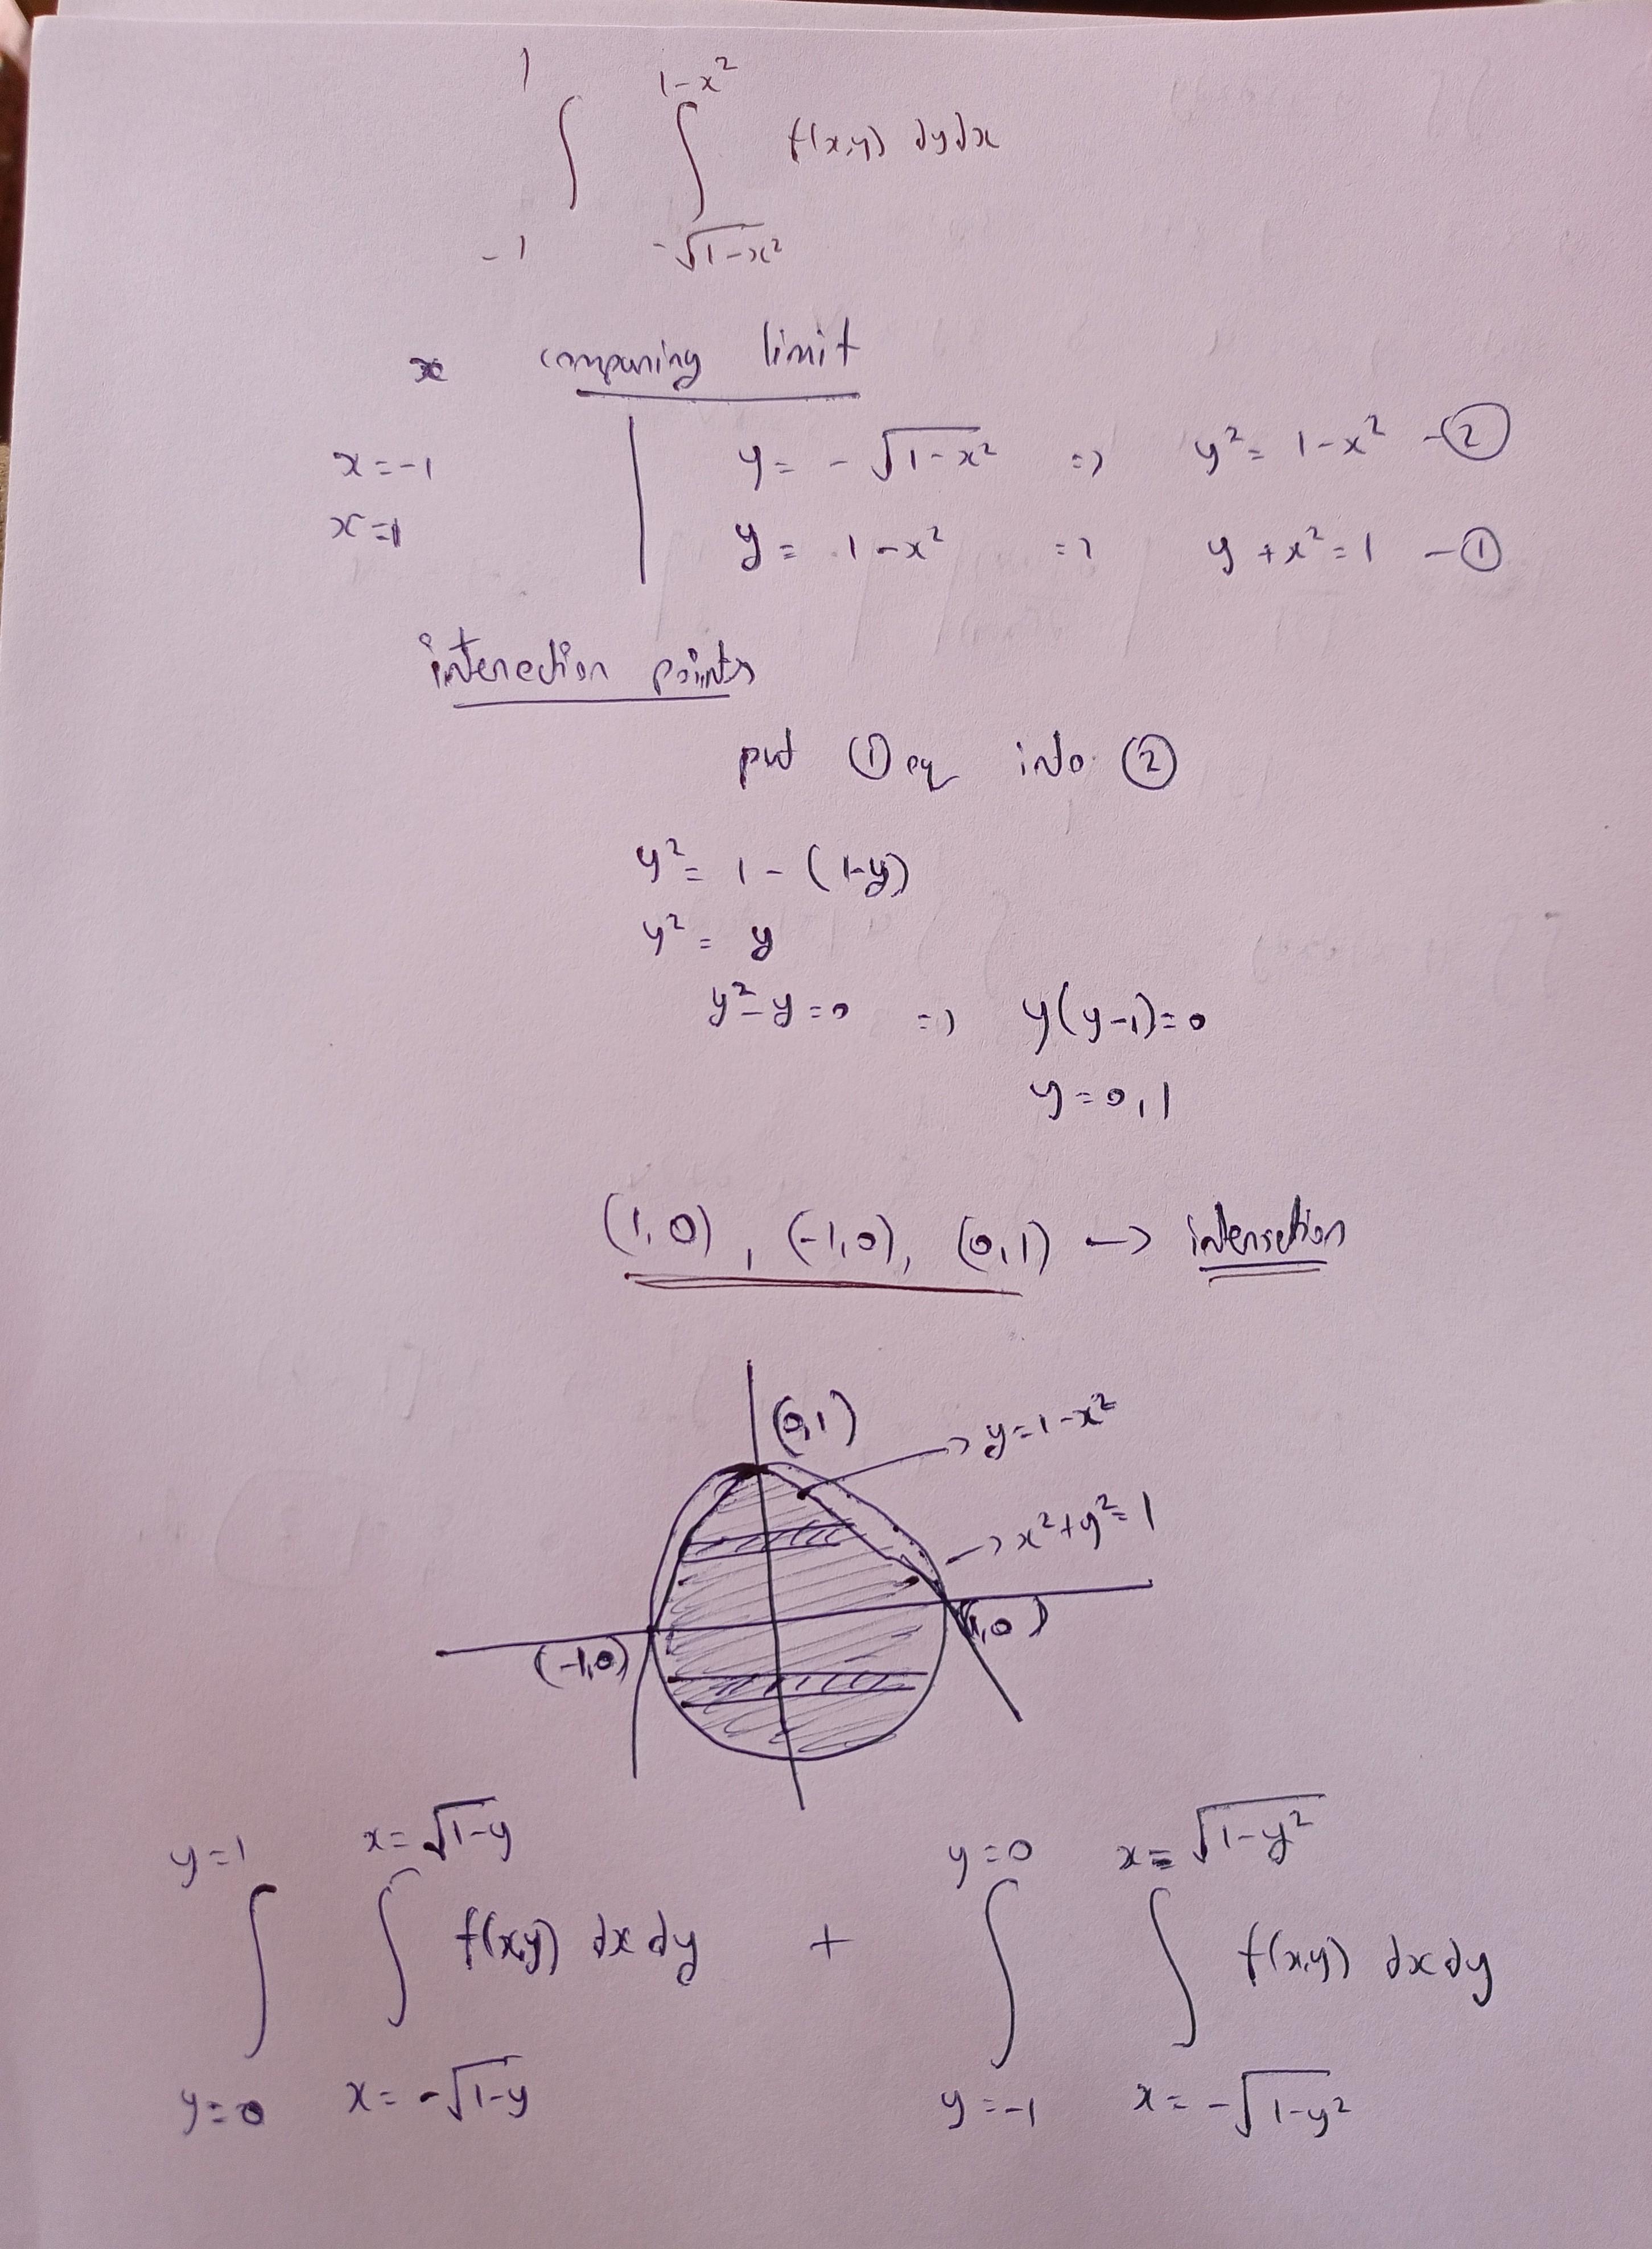 ∫_{-1}^{1} ∫_{-√(1-x²)}^{1-x²} f(x,y) dy dx
x comparing limit
x=-1 | y = -√(1-x²) => y² = 1-x² -②
x=1 | y = 1-x² => y+x²=1 -①
intersection points
put ① eq into ②
y² = 1-(1-y)
y² = y
y²-y=0 => y(y-1)=0
y=0,1
(1,0), (-1,0), (0,1) -> intersection
(0,1) -> y=1-x²
-> x²+y²=1
(-1,0) (1,0)
∫_{y=0}^{y=1} ∫_{x=-√(1-y)}^{x=√(1-y)} f(x,y) dx dy + ∫_{y=-1}^{y=0} ∫_{x=-√(1-y²)}^{x=√(1-y²)} f(x,y) dx dy